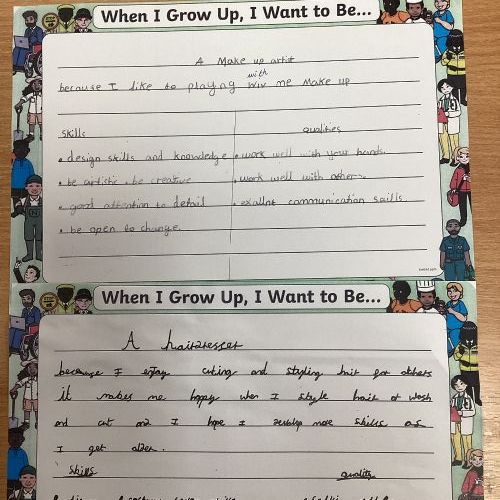 When I Grow Up, I Want to Be...
A Make up artist
with
because I like to playing me Make up
skills qualities
• design skills and knowledge • work well with your hands.
• be artistic • be creative • work well with others.
• good attention to detail • exallnt communication saills
• be open to change.
When I Grow Up, I Want to Be...
A hairdresser
because I enjoy cuting and styling hair for others
it makes me happy when I style hair or wash
and cut and I hope I develop more skills as
I get older.
skills quality